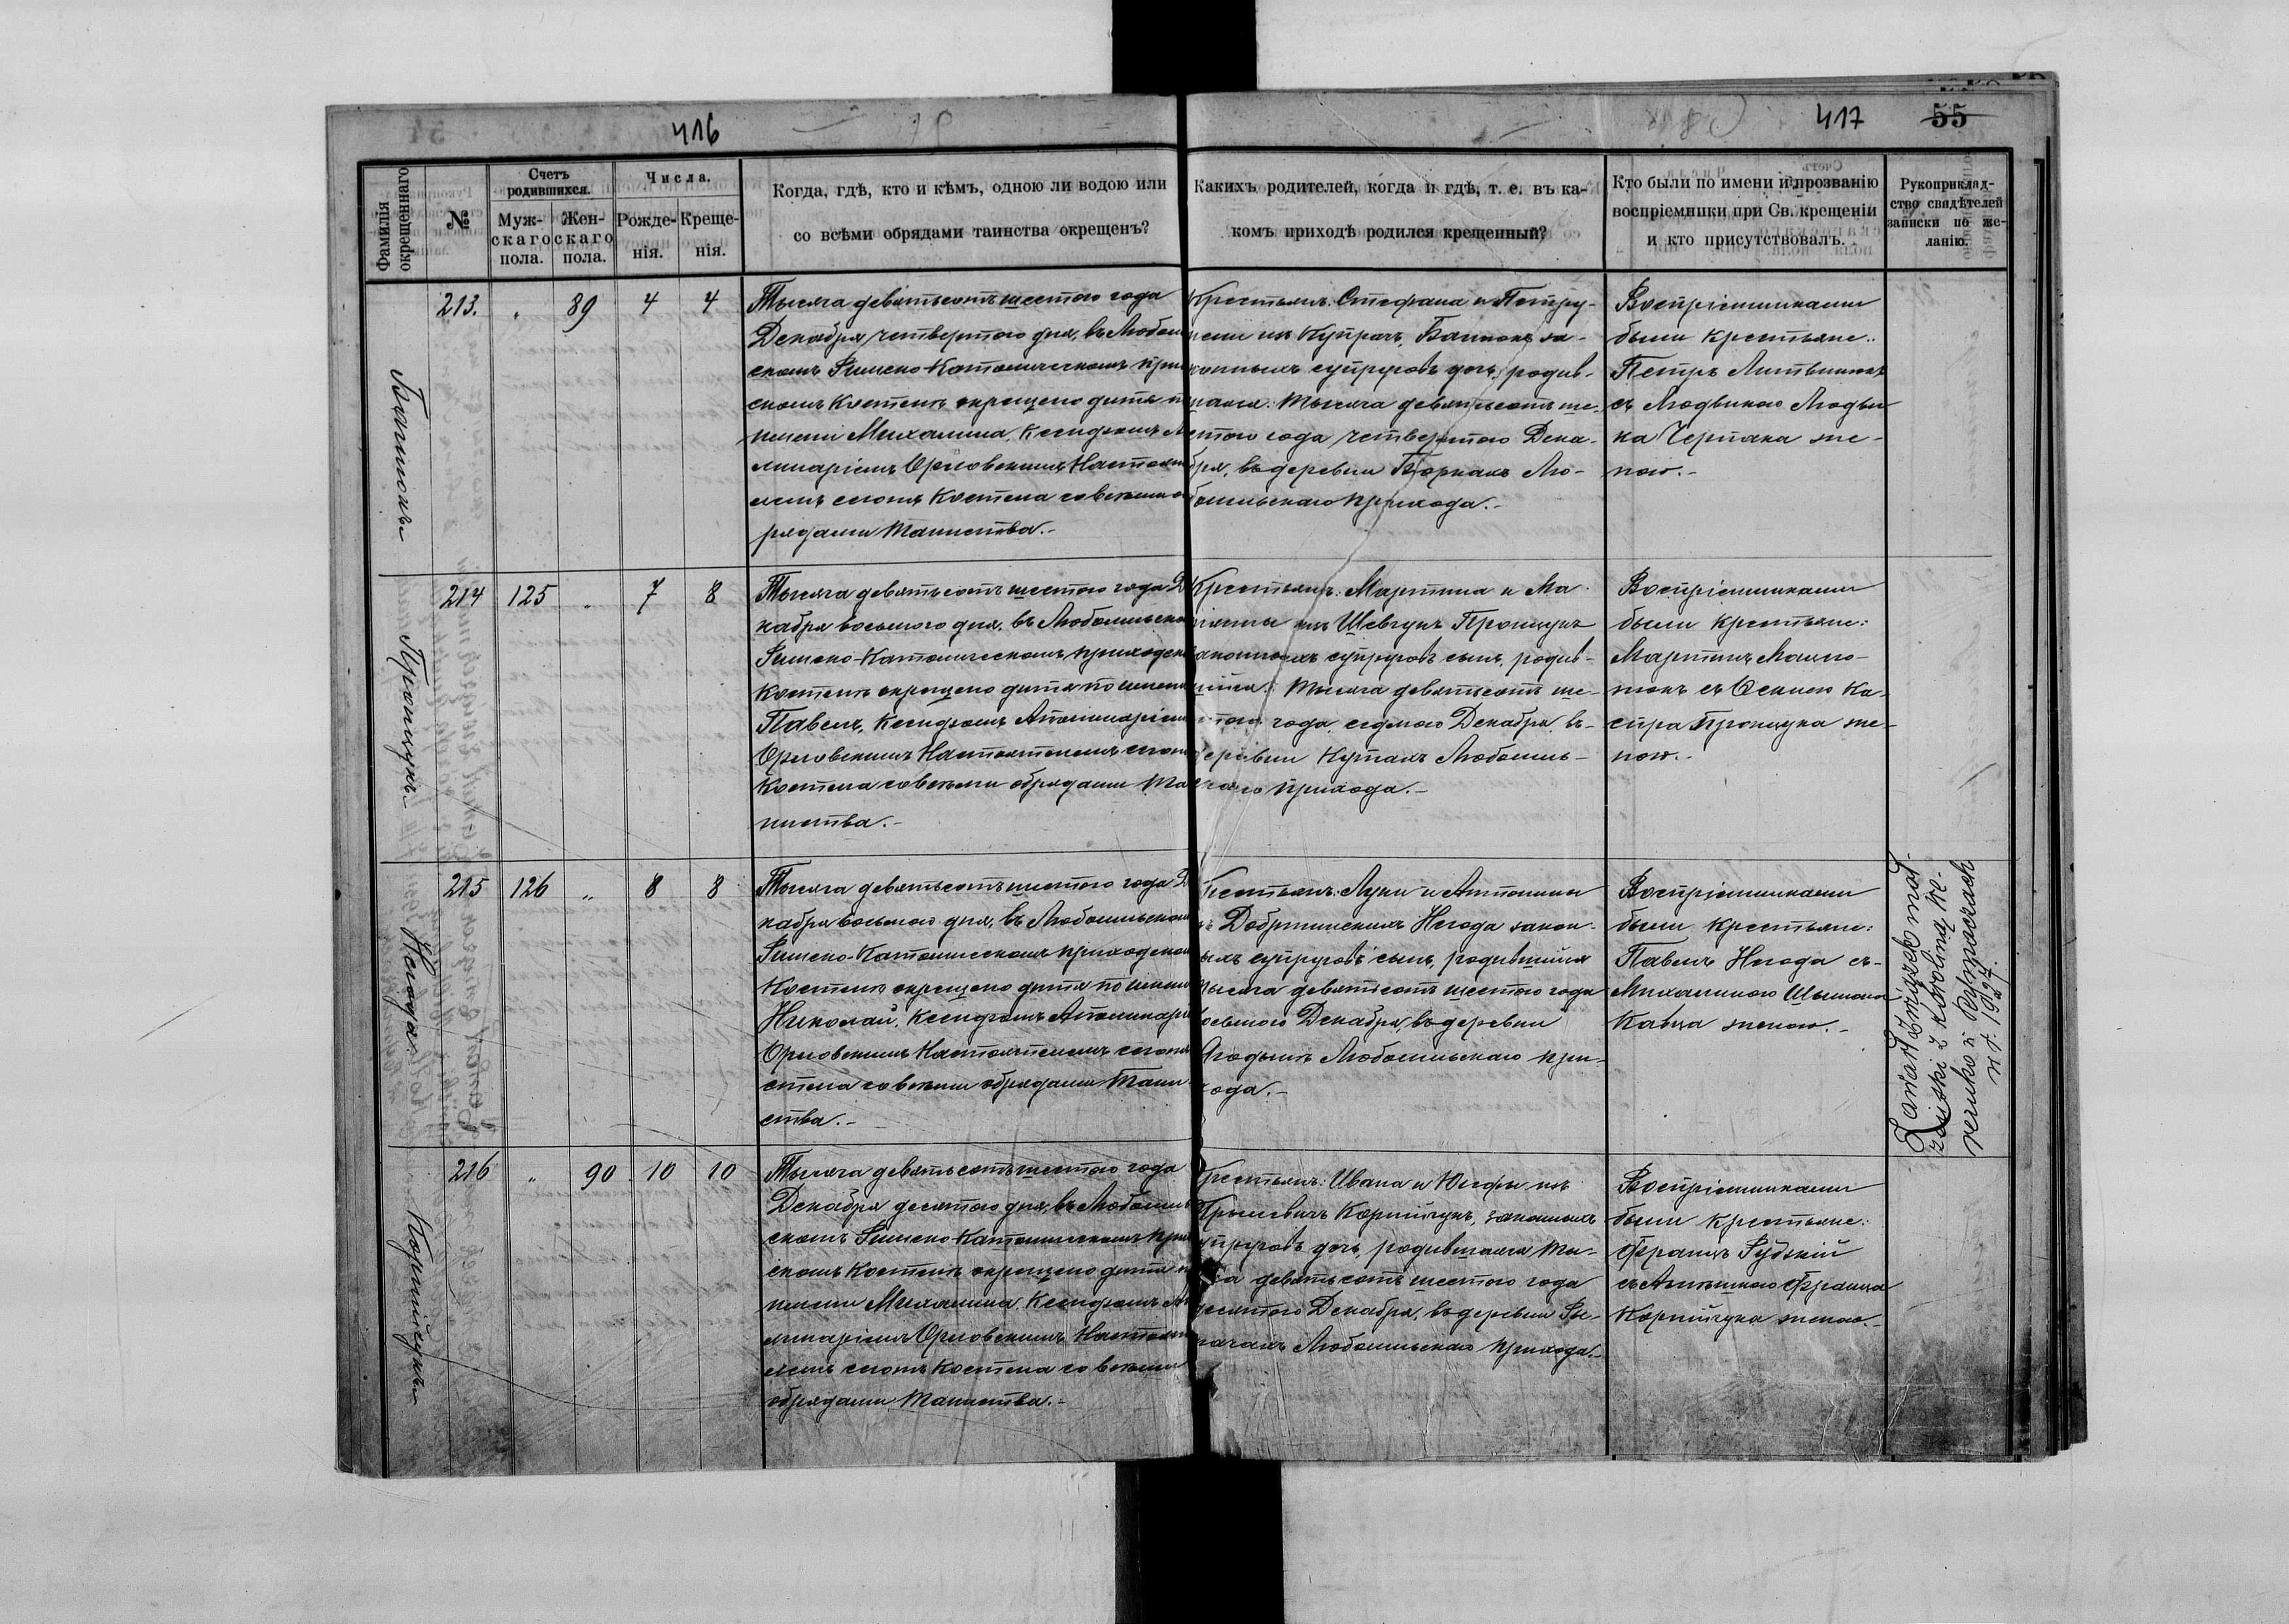 416
417
55
Фамилія окрещеннаго
№
Счетъ родившихся.
Муж-скаго пола.
Жен-скаго пола.
Числа.
Рожде-нія.
Креще-нія.
Когда, гдѣ, кто и кѣмъ, одною ли водою или
со всѣми обрядами таинства окрещенъ?
Какихъ родителей, когда и гдѣ, т. е. въ ка-
комъ приходѣ родился крещенный?
Кто были по имени и прозванію
воспріемники при Св. крещеніи
и кто присутствовалъ.
Рукоприклад-
ство свидѣтелей
записки по же-
ланію.
213.
89
4
4
Тысяча девятьсотъ шестого года
Декабря четвертого дня, въ Любом
скомъ Римско-Католическомъ при
скомъ Костелѣ окрещено дитя
имени Михалина, Ксендзомъ
линаріемъ Орловскимъ Настоя
лемъ сего Костела со всѣми
рядами Таинства.-
Крестьянъ: Стефана и Петру-
нели изъ Бащокъ за-
конныхъ супруговъ дочь, родив-
шаяся: тысяча девятьсотъ ше-
стого года четвертого Дека-
бря, въ деревни Боркахъ Лю-
бомльскаго прихода.-
Воспріемниками
были крестьяне:
Петръ Литвинюкъ
съ Людвикою Людви
ка женою.-
214
125
7
8
Тысяча девятьсотъ шестого года Д
кабря восьмого дня, въ Любомльско
Римско-Католическомъ приходско
Костелѣ окрещено дитя по имени
Павелъ, Ксендзомъ Аполинаріем
Орловскимъ Настоятелемъ сего
Костела со всѣми обрядами Та
инства.-
Крестьянъ: Мартина и Ма-
рiянны изъ Шевчукъ Прокщукъ
законныхъ супруговъ сынъ, родив-
шійся: тысяча девятьсотъ ше-
стого года, седмого Декабря, въ
деревни Кутахъ Любомль-
скаго прихода.-
Воспріемниками
были крестьяне:
Мартинъ
съ Ка-
спра Прокщука же-
ною.-
215
126
8
8
Нсгода
Тысяча девятьсотъ шестого года Д
кабря восьмого дня, въ Любомльском
Римско-Католическомъ приходском
Костелѣ окрещено дитя по имени
Николай, Ксендзомъ Аполинарі
Орловскимъ Настоятелемъ сего
стела со всѣми обрядами Таин
ства.-
Крестьянъ: Луки и Антонины
изъ Добртинскихъ Нсгода закон-
ныхъ супруговъ сынъ, родившійся
тысяча девятьсотъ шестого года
восьмого Декабря, въ деревни
Ягодынѣ Любомльскаго при-
хода.-
Воспріемниками
были крестьяне:
Павелъ Нсгода съ
Михалиною
женою.-
Zawarł Związek mał-
żeński z Karoliną
i w Rymaczach
w r. 1927.
216
90
10
10
Корнійчукъ
Тысяча девятьсотъ шестого года
Декабря десятого дня, въ Любомль
скомъ Римско-Католическомъ при
скомъ Костелѣ окрещено дитя
имени Михалина, Ксендзомъ
линаріемъ Орловскимъ Настоят
лемъ сего Костела со всѣми
обрядами Таинства.-
Крестьянъ: Ивана и Юзефы изъ
Корнійчукъ, законныхъ
супруговъ дочь, родившаяся ты-
сяча девятьсотъ шестого года
десятого Декабря, въ деревни Ры-
мачахъ Любомльскаго прихода.-
Воспріемниками
были крестьяне:
Францъ Рудскій
съ Франца
Корнійчука женою.-